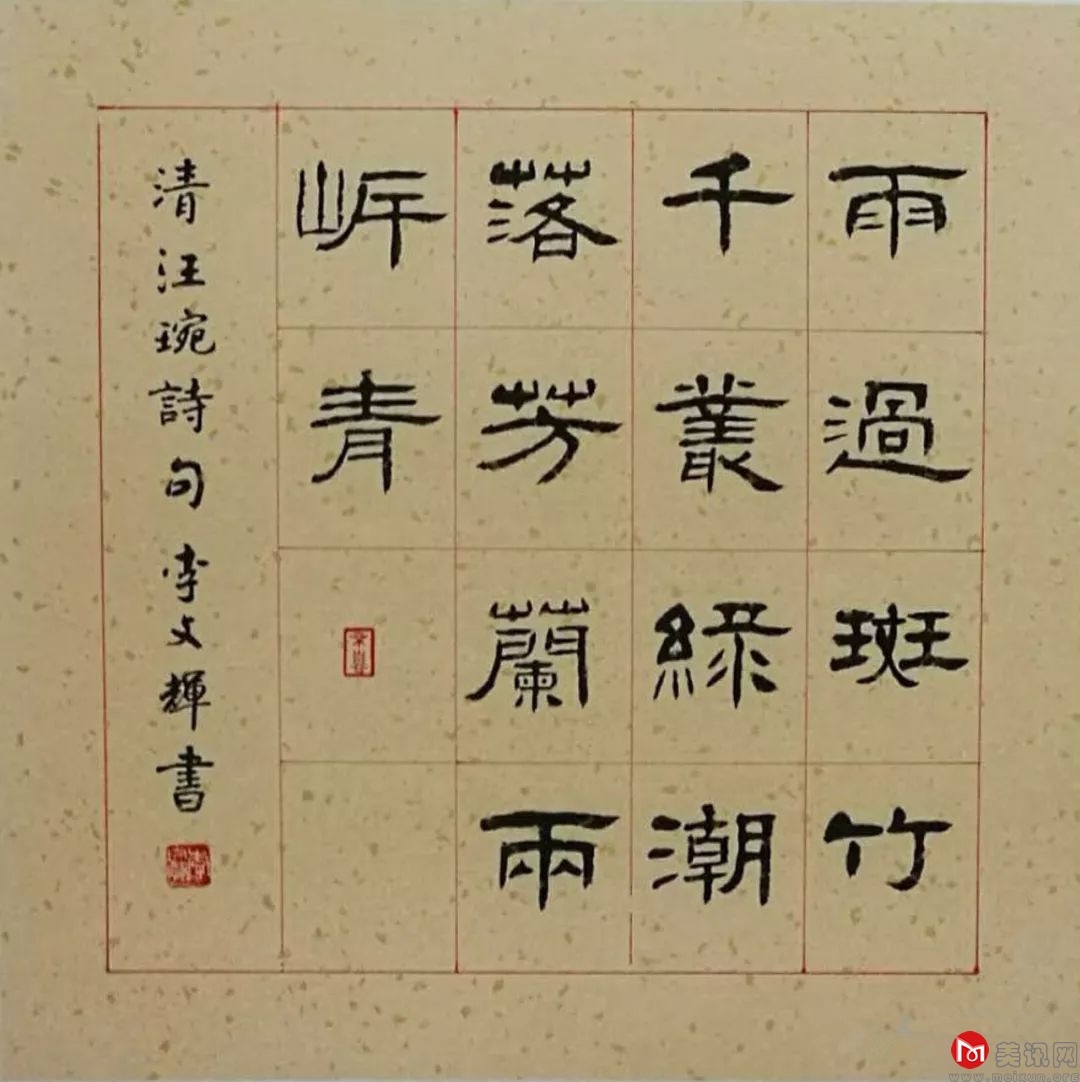 雨過斑竹
千叢綠潮
落芳蘭兩
岸青
清汪琬詩句 李文輝書
美讯网
www.meixun.org